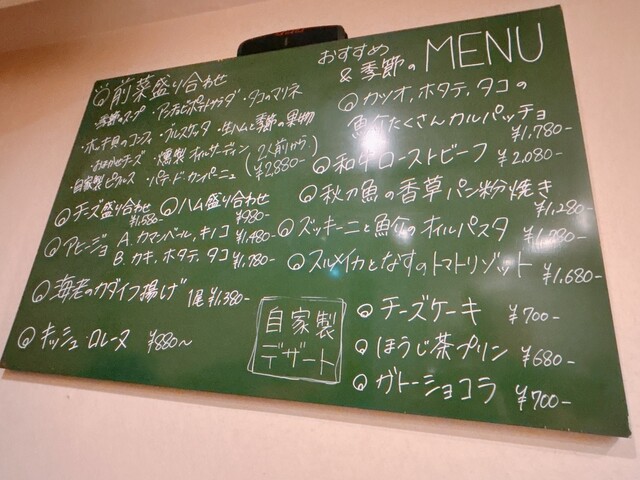 おすすめ
& 季節の MENU
◎前菜盛り合わせ
季節のスープ ・アンチョビポテトサラダ ・タコのマリネ
・ホタテ貝のコンフィ ・ブルスケッタ ・生ハムと季節の果物
・おまかせチーズ ・燻製オイルサーディン (2人前から)
・自家製ピクルス ・パテ・ド・カンパーニュ ¥2,880-
◎チーズ盛り合わせ ◎ハム盛り合わせ
¥1,580- ¥980-
◎アヒージョ A. カマンベール、キノコ ¥1,480-
B. カキ、ホタテ、タコ ¥1,780-
◎海老のカダイフ揚げ 1尾 ¥1,380-
◎キッシュ・ロレーヌ ¥880〜
◎カツオ、ホタテ、タコの
魚介たくさんカルパッチョ
¥1,780-
◎和牛ローストビーフ ¥2,080-
◎秋刀魚の香草パン粉焼き
¥1,280-
◎ズッキーニと魚介のオイルパスタ
◎スルメイカとなすのトマトリゾット
¥1,680-
自家製
デザート
◎チーズケーキ ¥700-
◎ほうじ茶プリン ¥680-
◎ガトーショコラ ¥700-